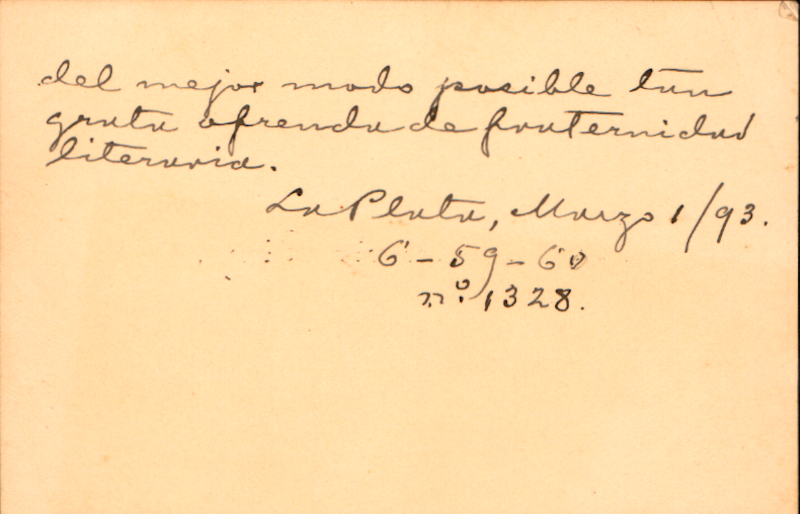 del mejor modo posible tan
grata ofrenda de fraternidad
literaria.
La Plata, Marzo 1/93.
6-59-60
nº. 1328.